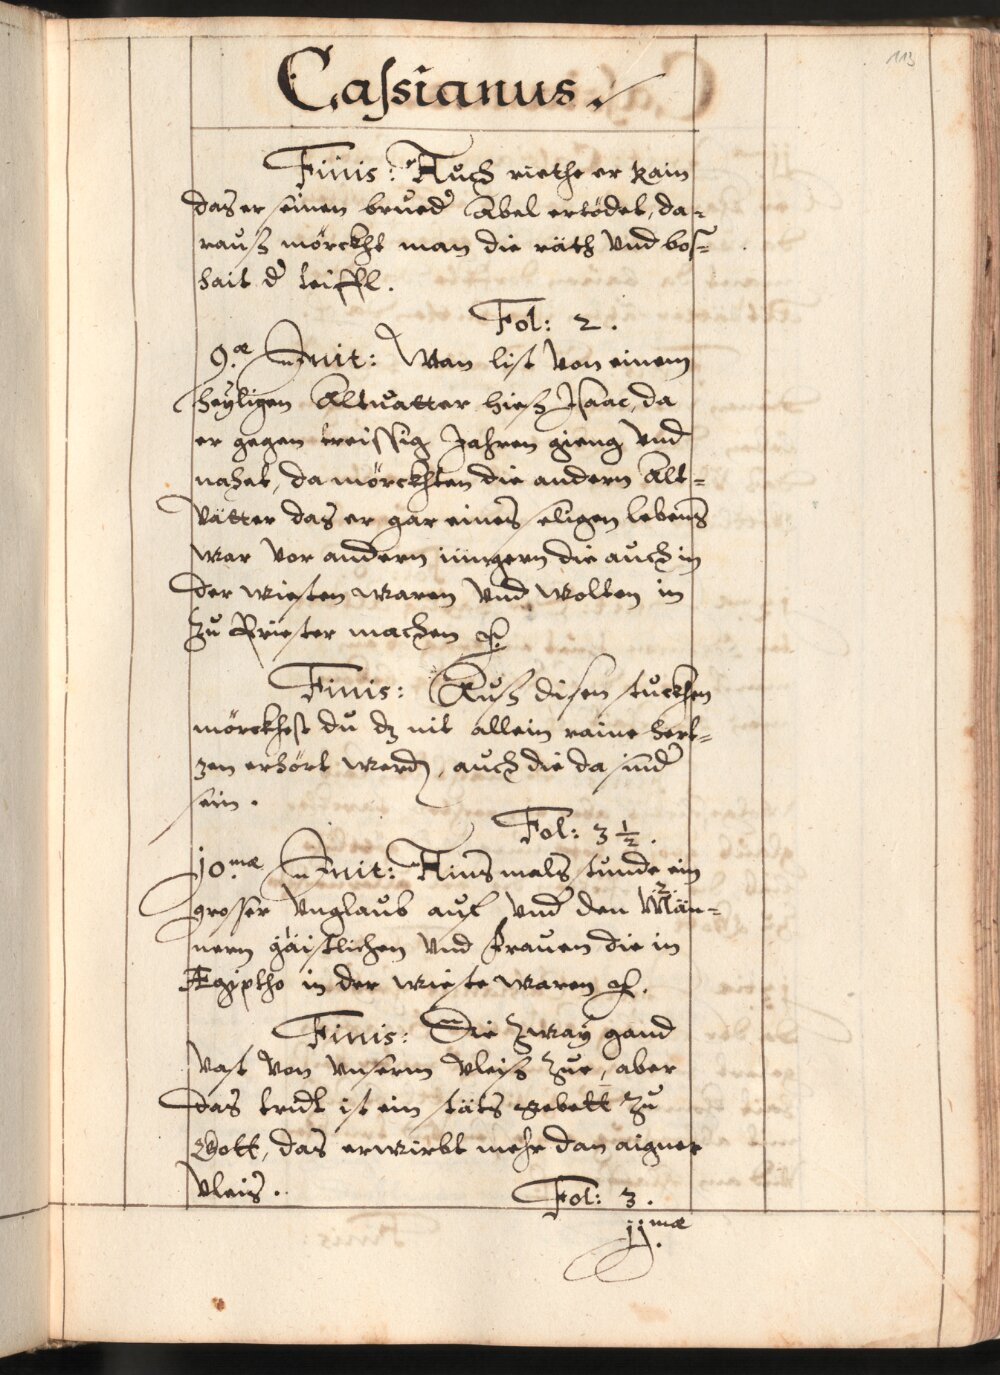 113
Cassianus
Finis: Auch riethe er Kain
das er seinen brued Abel ertödet, da-
rauß mörckht man die räth vnd bos-
hait d teiffl.
Fol: 2.
9.æ Init: Man list von einem
heyligen Altuatter hieß Isaac, da
er gegen treissig Jahren gieng vnd
nahet, da mörckhten die andern Alt-
vätter das er gar eines seligen lebens
war vor andern jüngern die auch in
der wiesten waren vnd wolten in
zu Priester machen
Finis: Auß disen stuckhen
mörckhest du dz nit allein raine hert-
zen erhört werd, auch die da sind
sein.
Fol: 3 ½.
10.mæ Init: Ains mals stunde ein
grosser vnglaub auf vnd den Män-
nern gäistlichen vnd frauen die in
Ægiptho in der wieste waren
Finis: Die zway gand
vast von vnserm vleiß zue, aber
das trit ist ein stäts gebett zu
Gott, das erwirbt mehr dan aigner
vleis.
Fol: 3.
jj.mæ